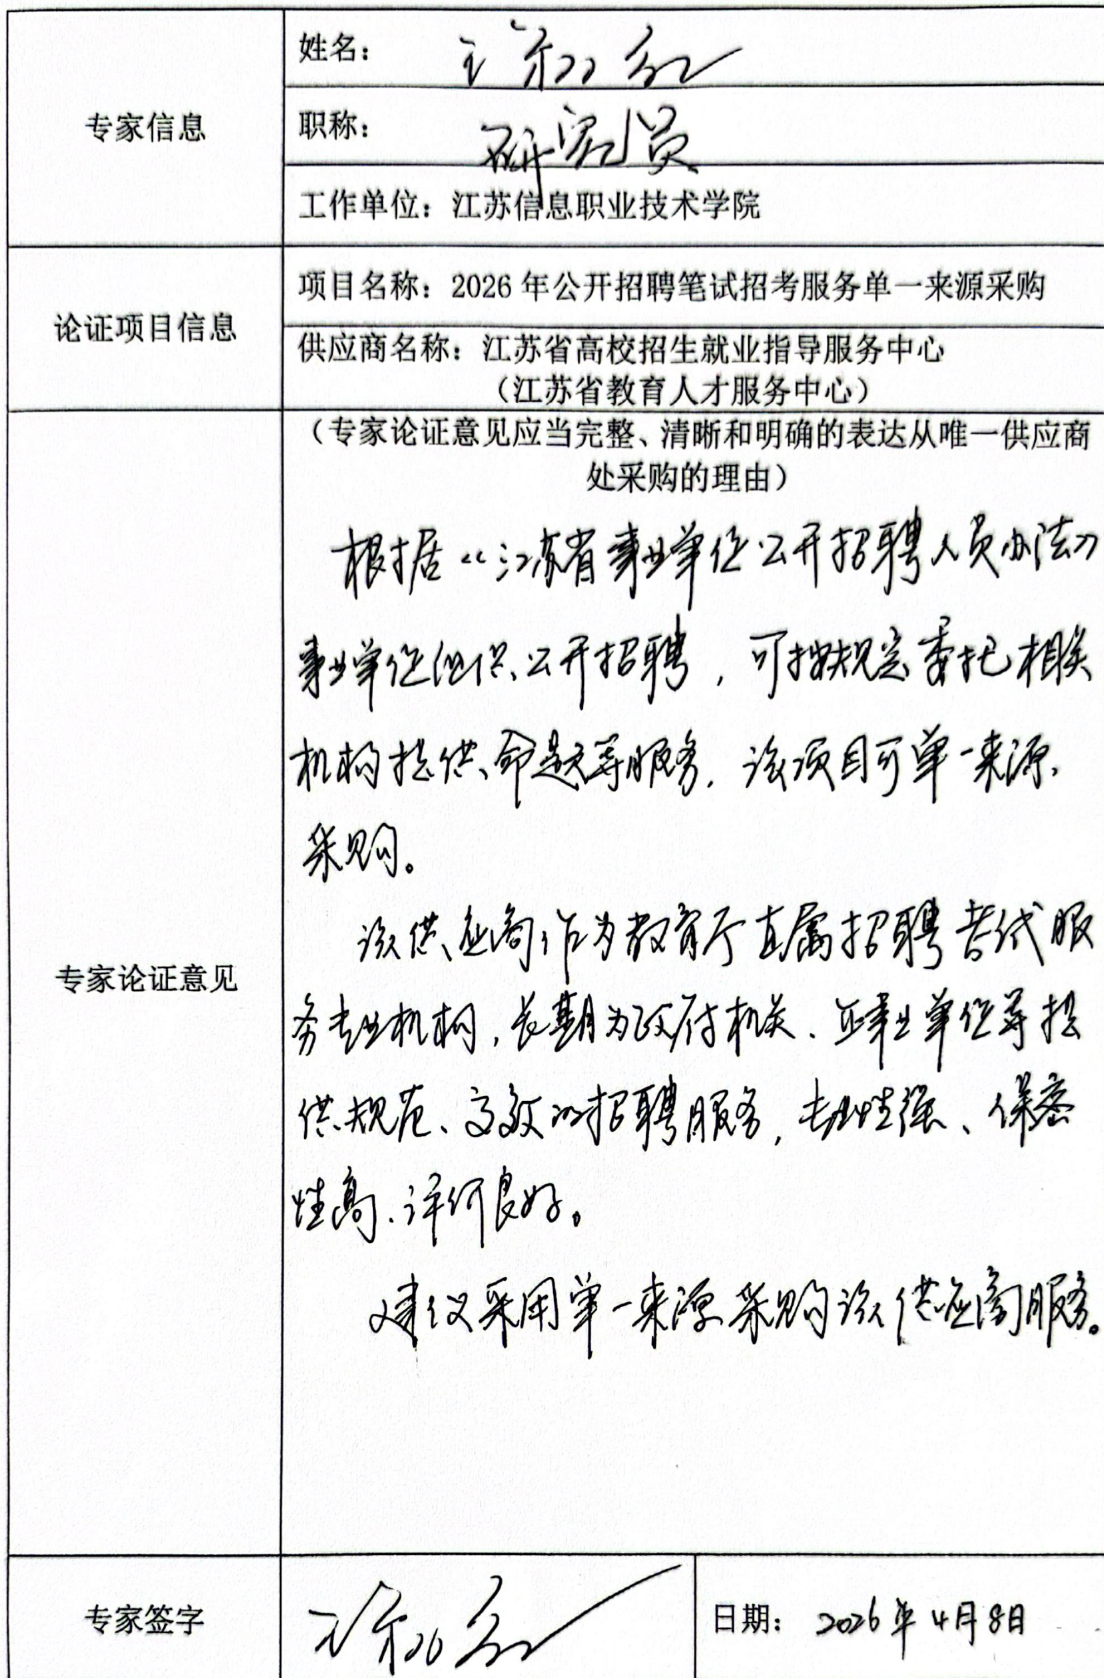 专家信息
姓名：
职称：研究员
工作单位：江苏信息职业技术学院
论证项目信息
项目名称：2026年公开招聘笔试招考服务单一来源采购
供应商名称：江苏省高校招生就业指导服务中心
（江苏省教育人才服务中心）
专家论证意见
（专家论证意见应当完整、清晰和明确的表达从唯一供应商
处采购的理由）
根据《江苏省事业单位公开招聘人员办法》
事业单位组织公开招聘，可按规定委托相关
机构提供命题等服务，该项目可单一来源
采购。
该供应商作为教育厅直属招聘考试服
务专业机构，长期为政府机关、企事业单位等提
供规范、高效的招聘服务，专业性强、保密
性高、评价良好。
建议采用单一来源采购该供应商服务。
专家签字
日期：2026年4月8日